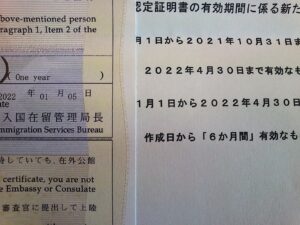 bove-mentioned person
ragraph 1, Item 2 of the
(One year)
2022 年 01 月 05 日
入国在留管理局長
mmigration Services Bureau
持していても、在外公館
certificate, you are not
e Embassy or Consulate
審査官に提出して上陸
認定証明書の有効期間に係る新た
月１日から２０２１年１０月３１日ま
２０２２年４月３０日まで有効なも
１月１日から２０２２年４月３０日
作成日から「６か月間」有効なも